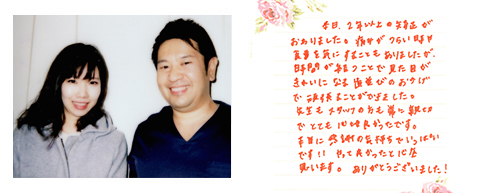 本日、2年以上の矯正が
おわりました。痛みがつらい時や
食事を気にすることもありましたが、
時間が経つことで見た目が
きれいになる歯並びのおかげ
で頑張ることができました。
先生もスタッフの方も常に親切
でとても心地良かったです。
本当に感謝の気持ちでいっぱい
です!! やって良かったと心から
思います。ありがとうございました!